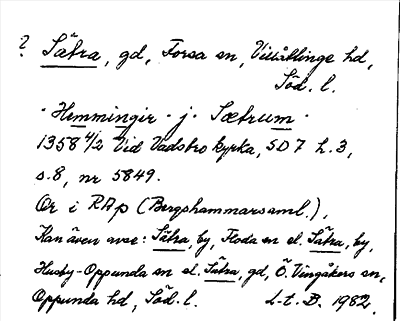 ? Sätra, gd, Forsa sn, Villåttinge hd,
Söd. l.
"Hemmingir · j · Sætrum"
1358 4/2 Vid Vadsbro kyrka, SD 7 h. 3,
s. 8, nr 5849.
Or i RAp (Bergshammarsaml.),
Kan även avse: Sätra, by, Floda sn el. Sätra, by,
Husby-Oppunda sn el. Sätra, gd, Ö. Vingåkers sn,
Oppunda hd, Söd. l. L-t. B. 1982.